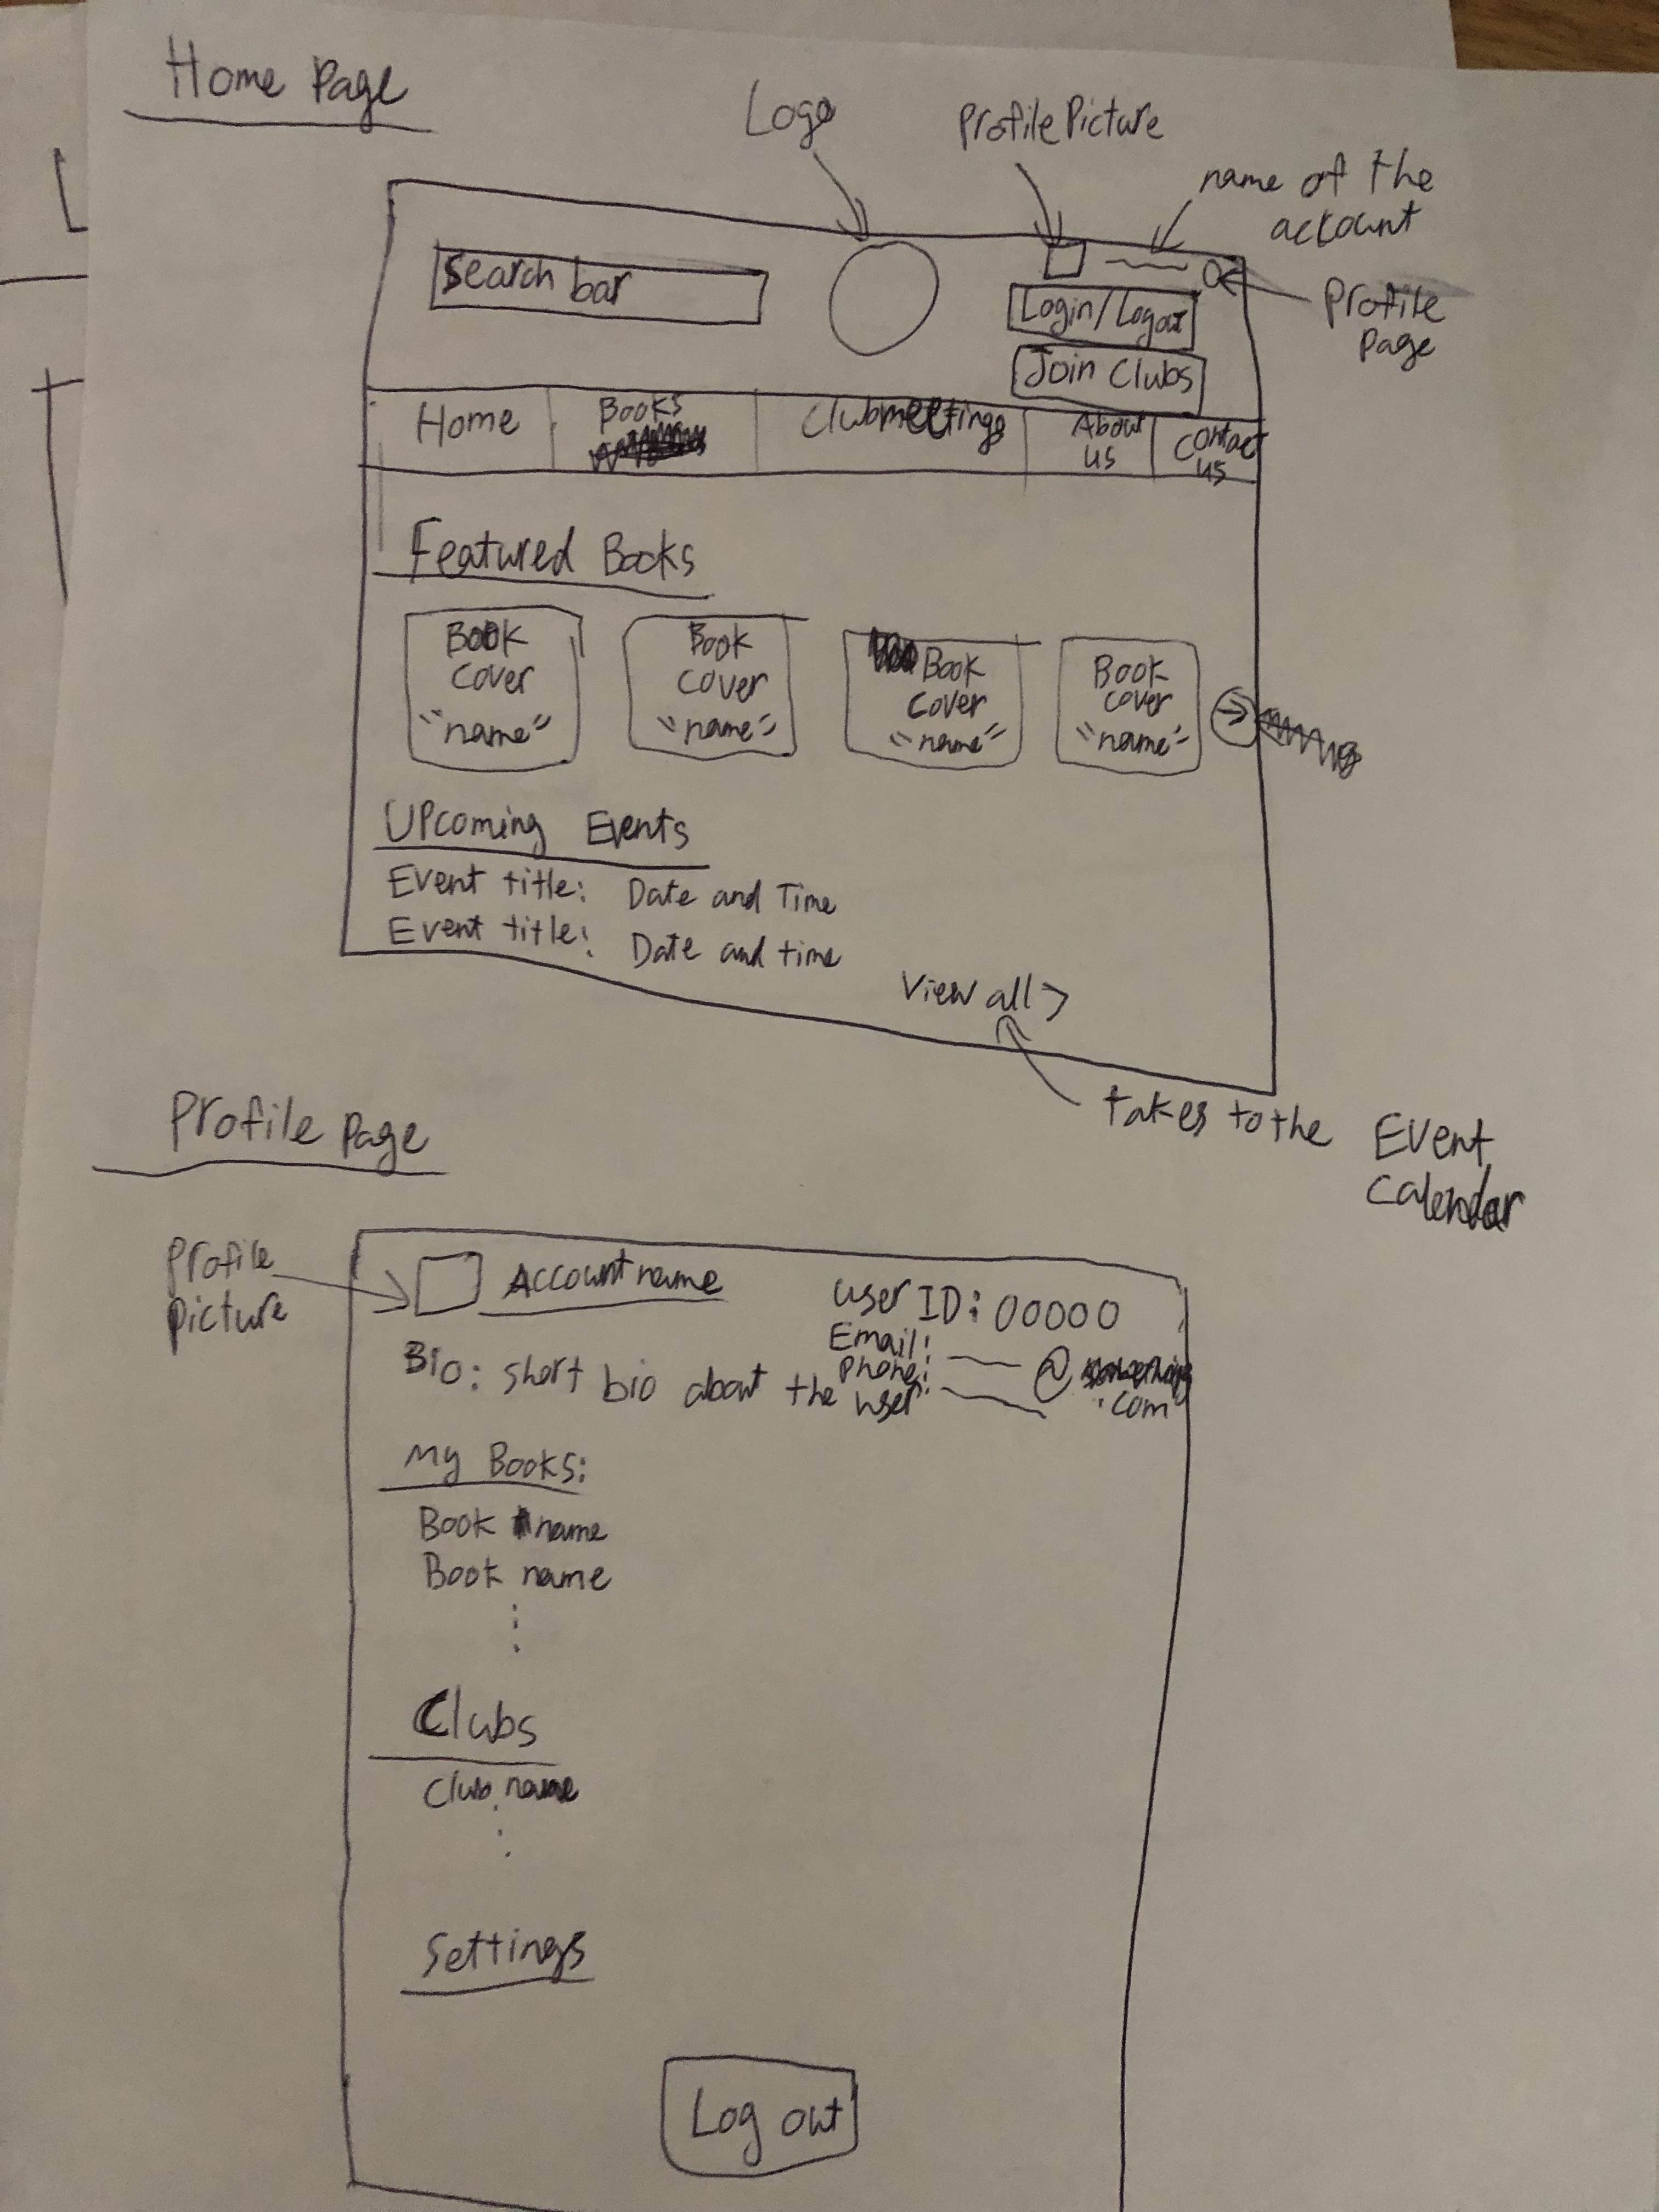 Home Page
Logo
Profile Picture
name of the
account
Profile
Page
Search bar
Login/Logout
Join Clubs
Home
Books
Clubmeetings
About
us
Contact
us
Featured Books
Book
cover
"name"
Book
cover
"name"
Book
cover
"name"
Book
cover
"name"
Upcoming Events
Event title: Date and Time
Event title: Date and time
View all >
takes to the Event
Calendar
Profile Page
Profile
picture
Account name
user ID: 00000
Email:
@
.com
Phone:
Bio: short bio about the user
My Books:
Book name
Book name
Clubs
Club name
Settings
Log out